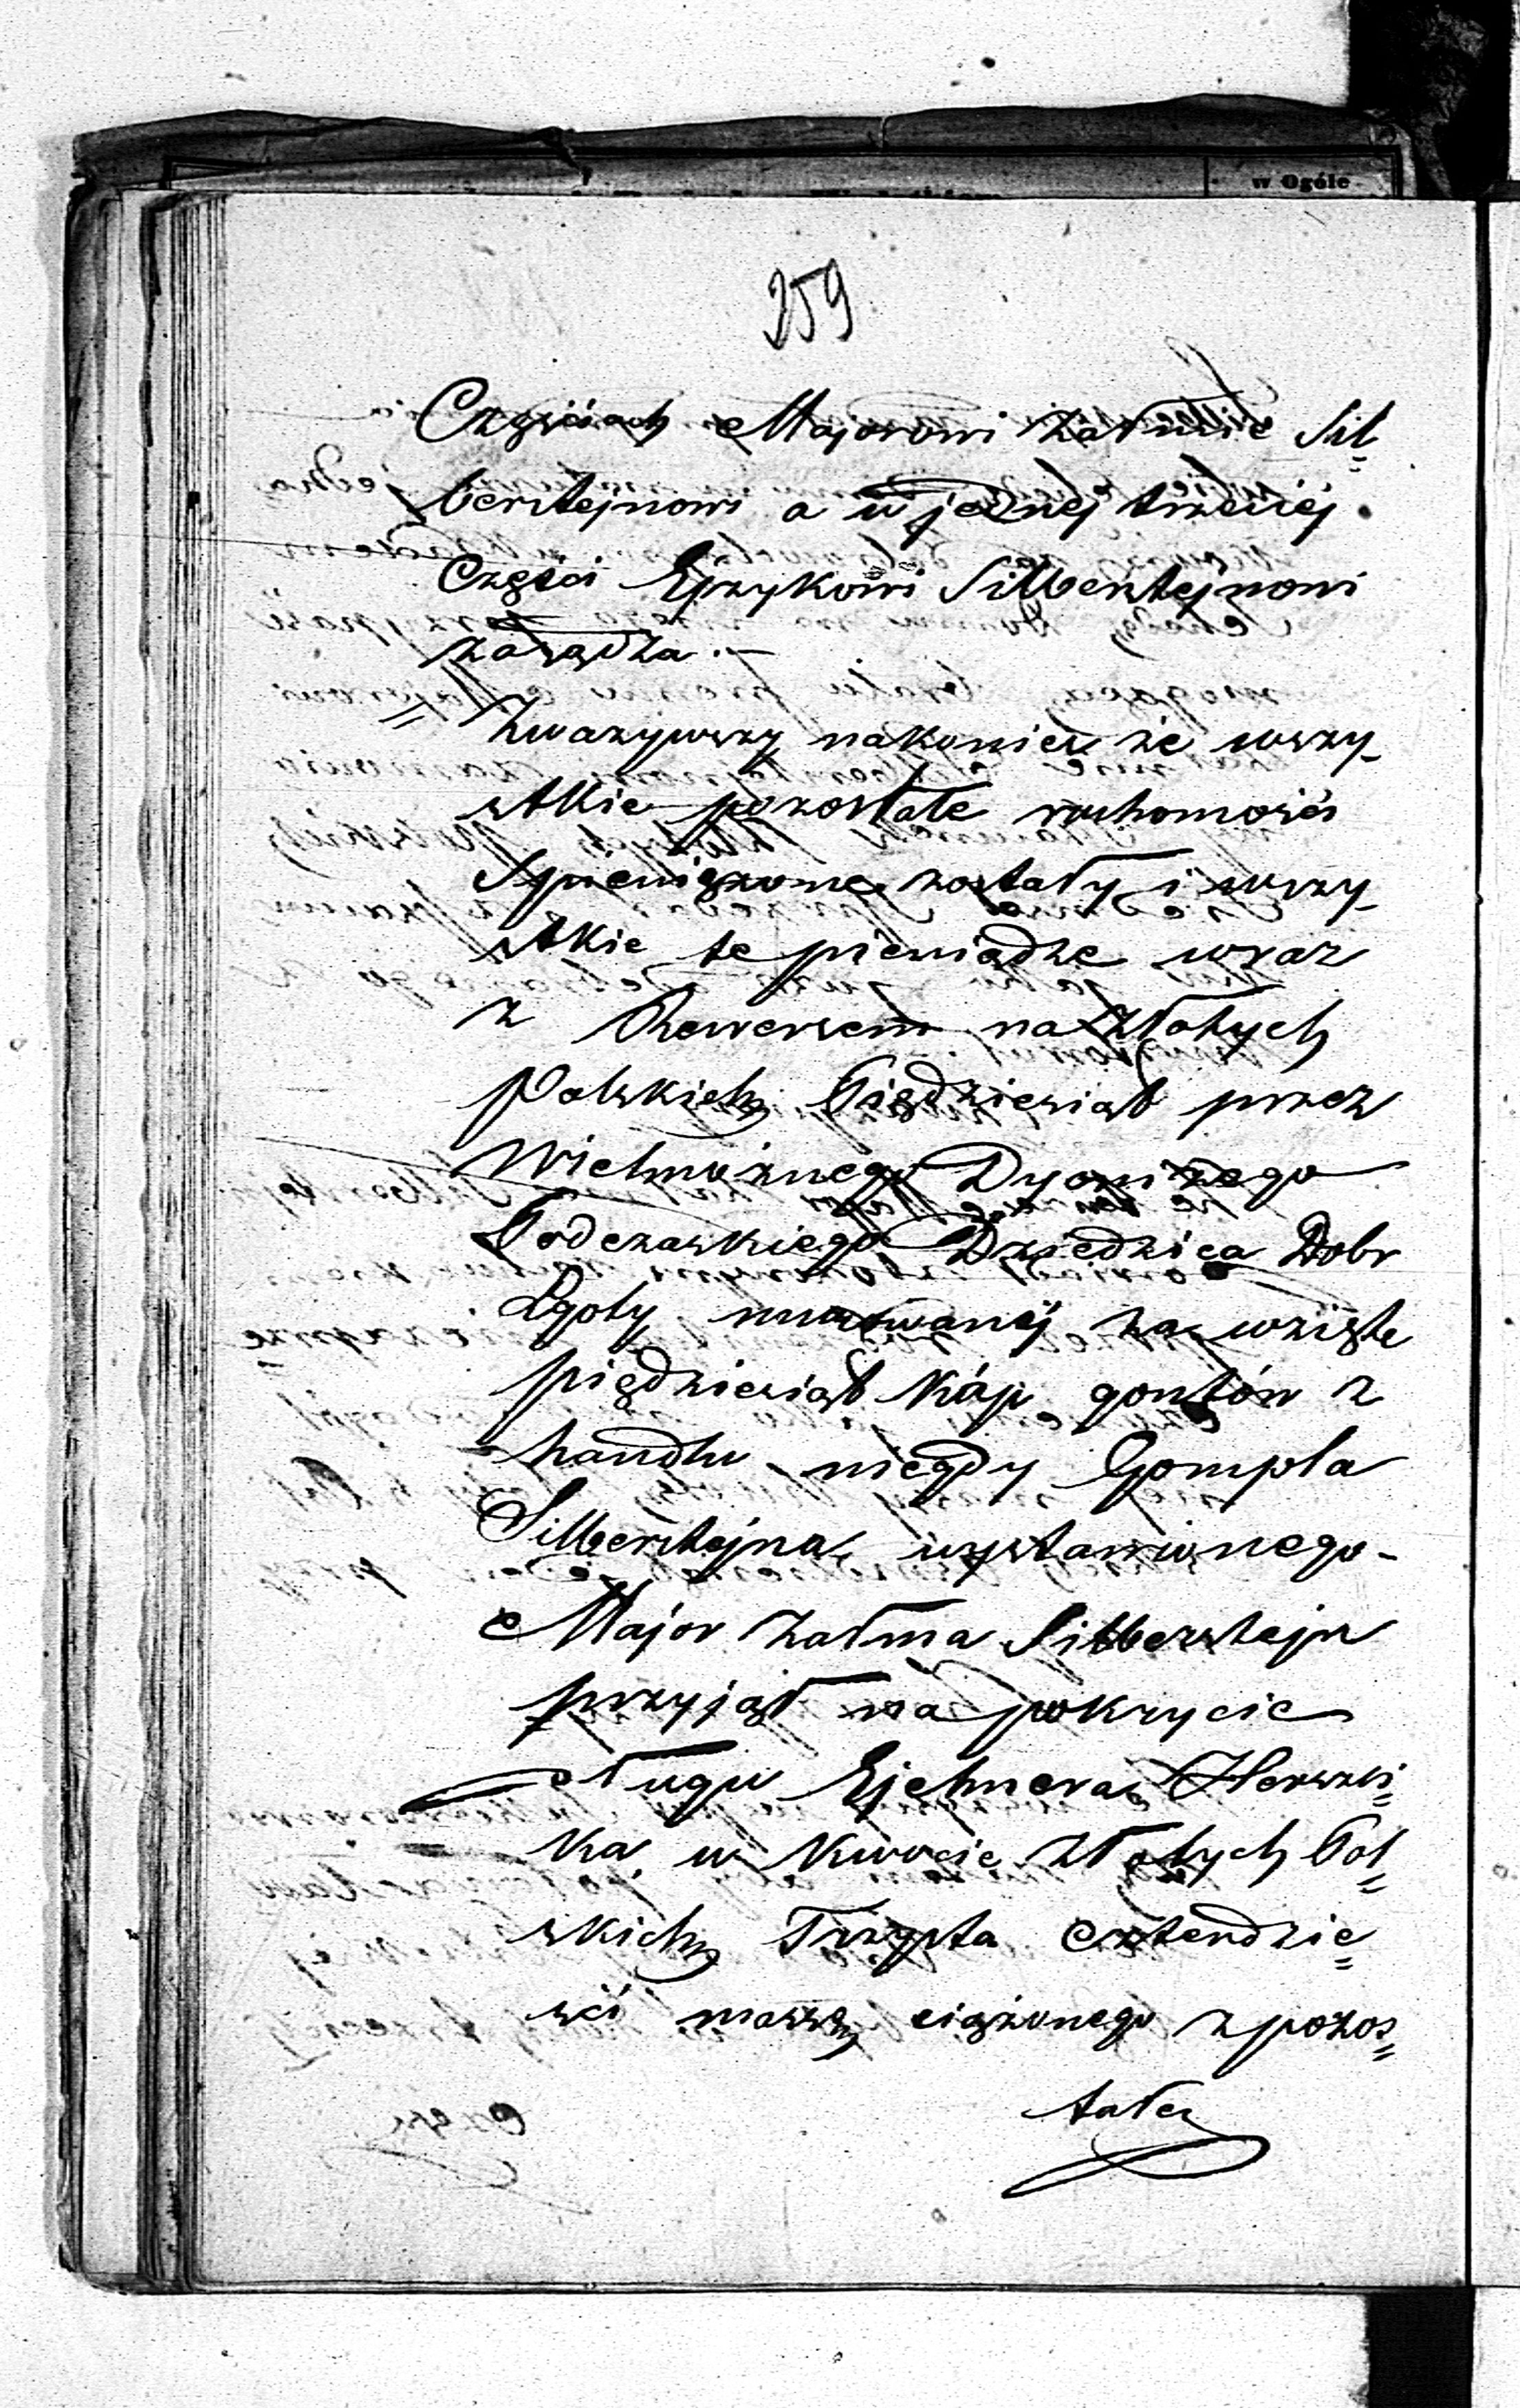 w Ogóle
259
Częściach Majorowi Załmie Sil=
bersztejnowi a w jednej trzeciéj
Części Ejzykowi Silbersztejnowi
zasądza.—
Zważywszy nakoniec że wszy-
stkie pozostałe ruchomości
Spieniężone zostały i wszy-
stkie te pieniądze wraz
z Rewersem na Złotych
Polskich Piędziesiąt przez
Wielmożnego Dyonizego
Podczaskiego Dziedzica Dobr
Lgoty murowanéj za wzięte
piędziesiąt kóp gontów z
handlu niegdy Gompla
Silbersztejna, wystawionego-
Major Załma Silbersztejn
przyjął na pokrycie
długu Ejchnera Herszli=
ka w kwocie Złotych Pol=
skich Trzysta czterdzie=
ści massę ciążonego z pozos=
tałej